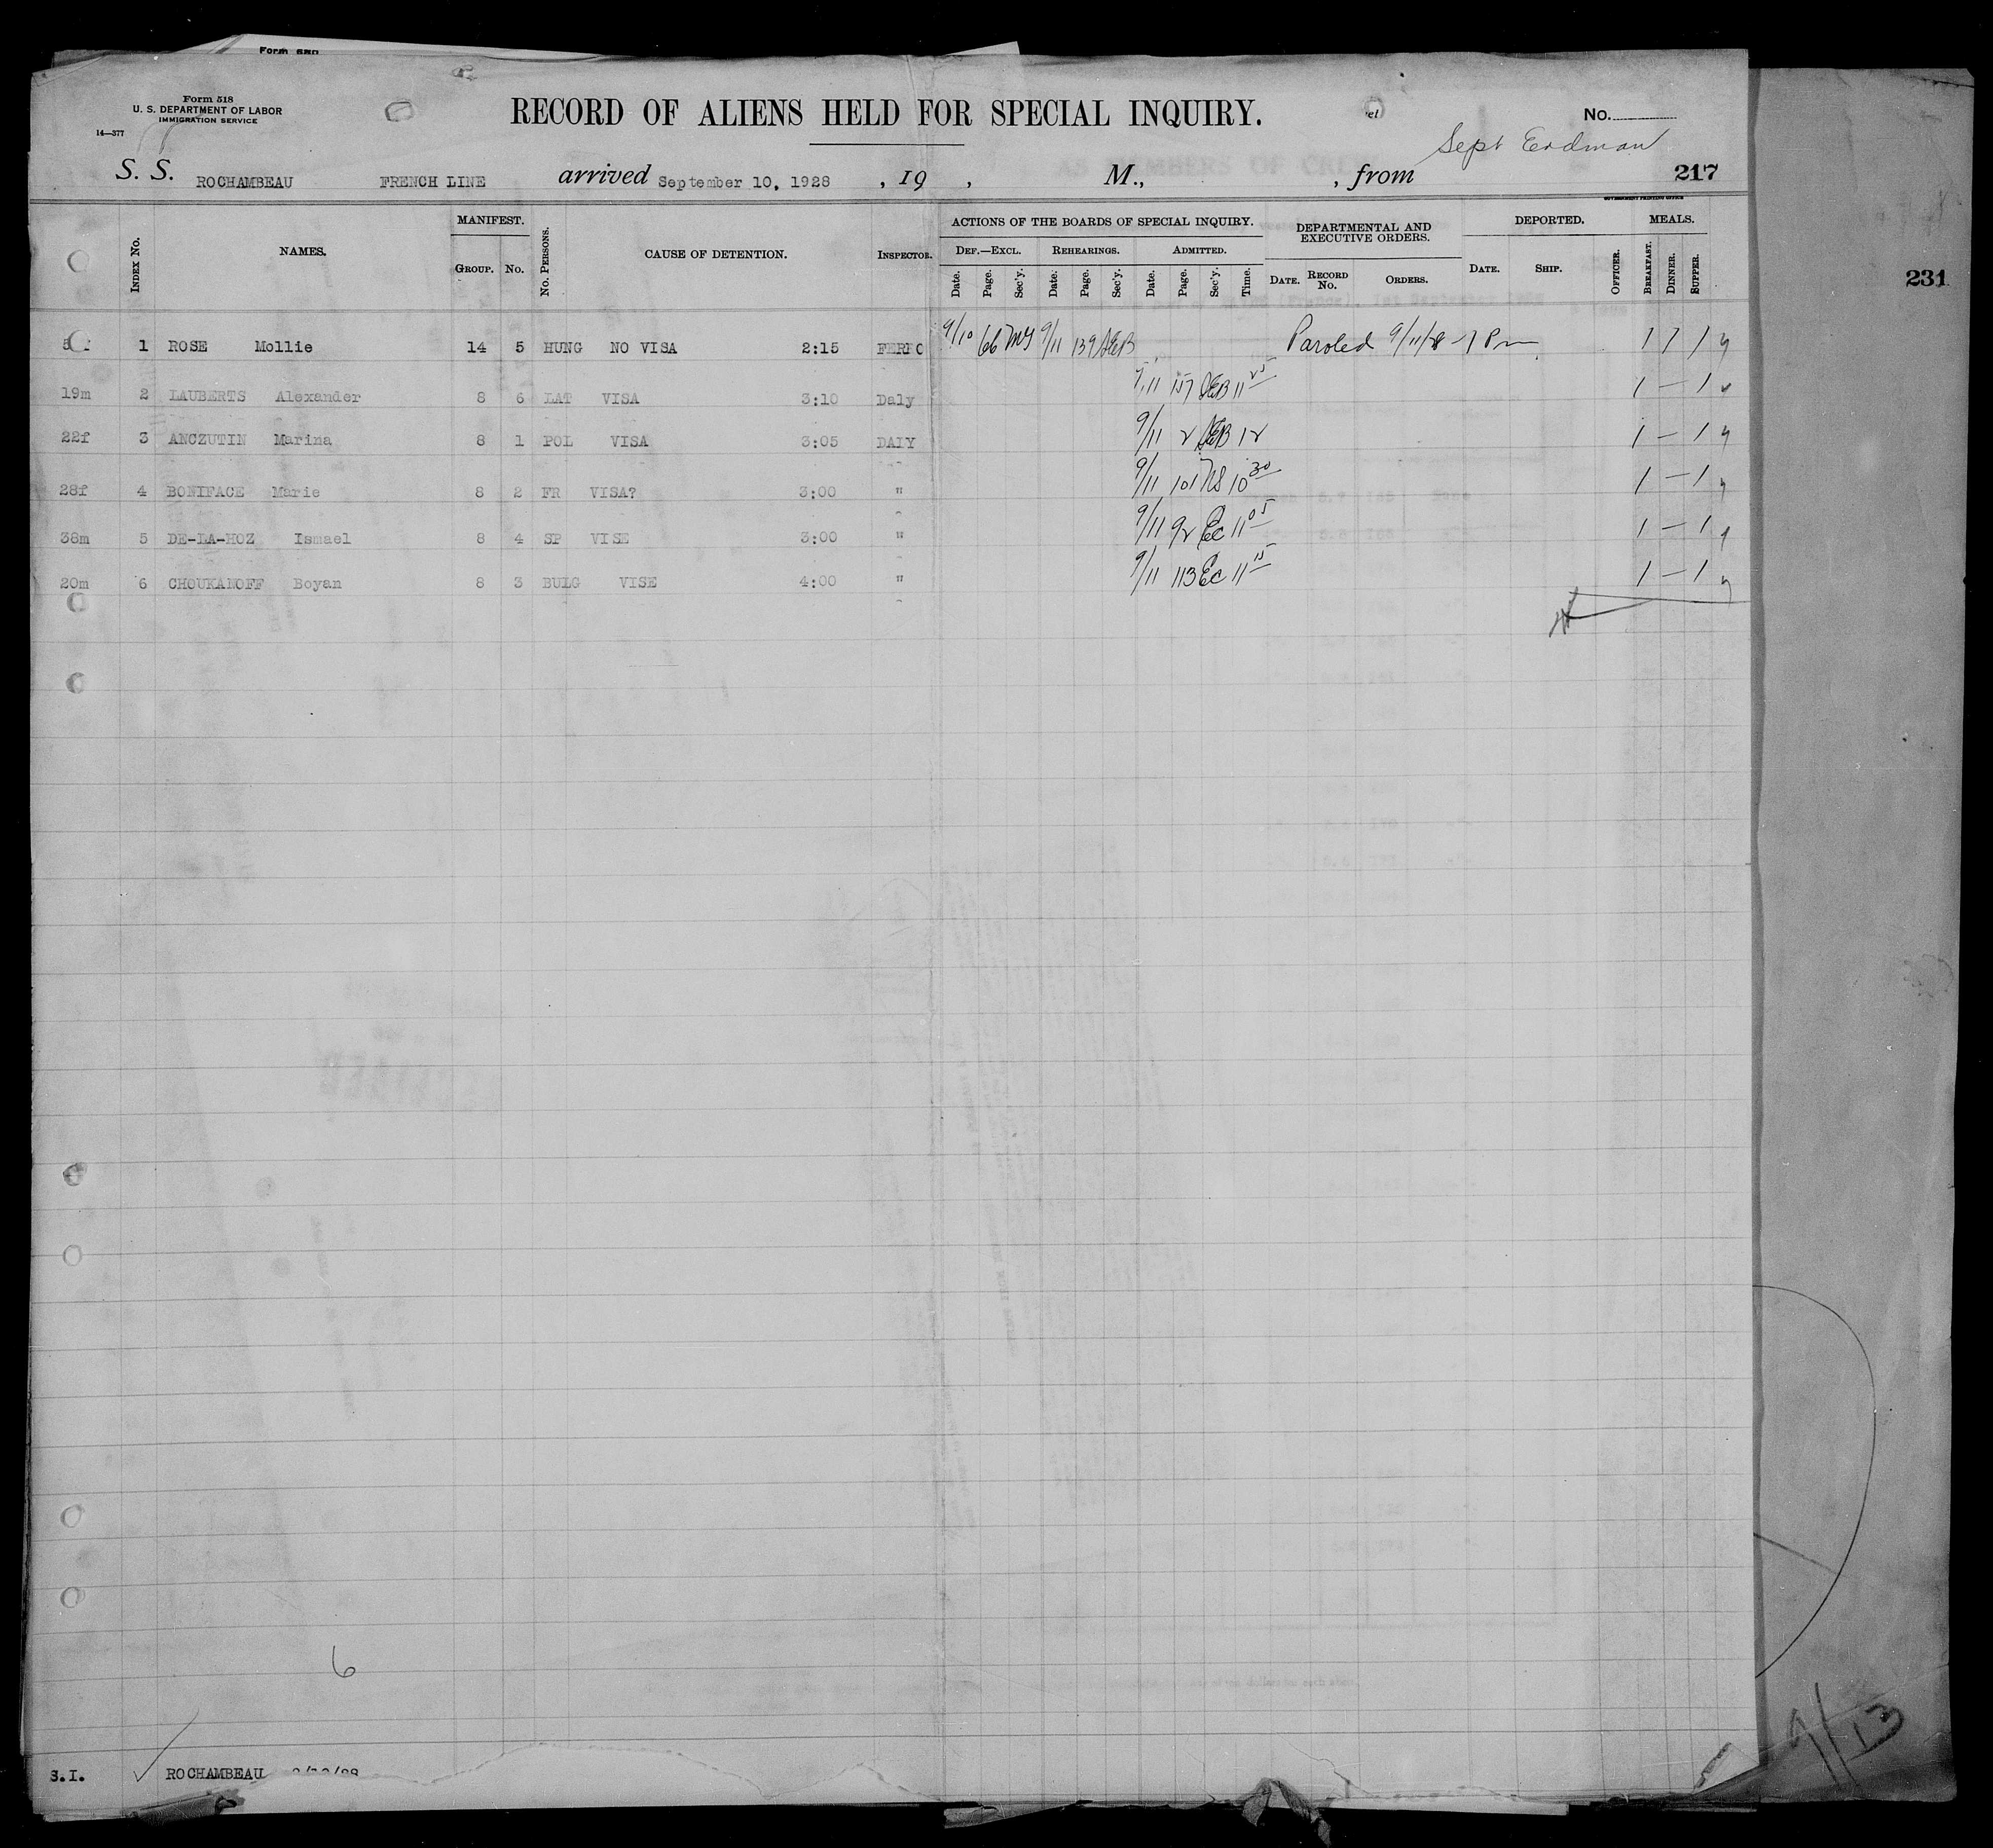 Form 518
U. S. DEPARTMENT OF LABOR
IMMIGRATION SERVICE
14—377
RECORD OF ALIENS HELD FOR SPECIAL INQUIRY.
No.
Sept Erdman
S. S. ROCHAMBEAU FRENCH LINE arrived September 10, 1928 , 19 , M., , from 217
GOVERNMENT PRINTING OFFICE
INDEX No. NAMES. MANIFEST. GROUP. No. No. PERSONS. CAUSE OF DETENTION. INSPECTOR. ACTIONS OF THE BOARDS OF SPECIAL INQUIRY. DEPARTMENTAL AND EXECUTIVE ORDERS. DEPORTED. MEALS.
DEF.—EXCL. REHEARINGS. ADMITTED.
Date. Page. Sec'y. Date. Page. Sec'y. Date. Page. Sec'y. Time. DATE. RECORD No. ORDERS. DATE. SHIP. OFFICER. BREAKFAST. DINNER. SUPPER.
231
1 ROSE Mollie 14 5 HUNG NO VISA 2:15 9/10 66 9/11 139 Paroled 9/11/28 1 1 1
19m 2 LAUBERTS Alexander 8 6 LAT VISA 3:10 Daly 9/11 157 11 25 1 — 1
22f 3 ANCZUTIN Marina 8 1 POL VISA 3:05 DALY 9/11 2 12 1 — 1
28f 4 BONIFACE Marie 8 2 FR VISA? 3:00 " 9/11 101 10 30 1 — 1
38m 5 DE-LA-HOZ Ismael 8 4 SP VISE 3:00 " 9/11 92 EC 11 05 1 — 1
20m 6 CHOUKANOFF Boyan 8 3 BULG VISE 4:00 " 9/11 113 EC 11 15 1 — 1
6
9/13
S.I. ROCHAMBEAU